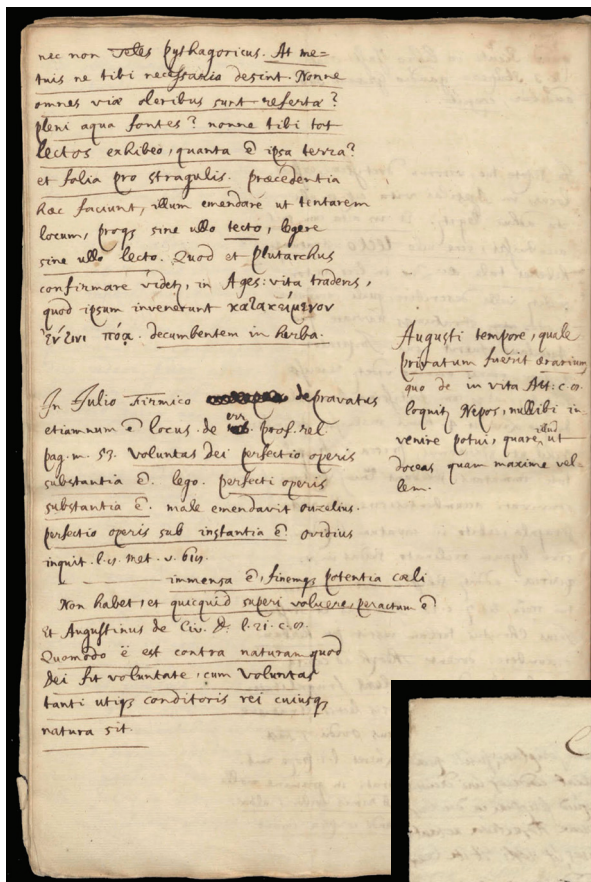 nec non Teles Pythagoricus. At me=
tuis ne tibi necessaria desint. Nonne
omnes viæ oleribus sunt refertæ?
pleni aqua fontes? nonne tibi tot
lectos exhibeo, quanta ē ipsa terra?
et folia pro stragulis. præcedentia
hæc faciunt, illum emendare ut tentarem
locum, proqȝ sine ullo tecto, legere
sine ullo lecto. Quod et Plutarchus
confirmare videtȝ, in Ages: vita tradens,
quod ipsum invenerunt κατακείμενον
ἔν τινι πόᾳ. decumbentem in herba.
In Julio Firmico depravatus
etiamnum ē locus. de err. prof. rel.
pag. m. 53. voluntas dei perfectio operis
substantia ē. lego. perfecti operis
substantia ē. male emendavit ouzelius.
perfectio operis sub instantia ē. ovidius
inquit. met. v.
immensa ē, finemqȝ potentia cæli
Non habet, et quicquid superi voluere, peractum ē
Et Augustinus de Civ. D. l. 21. c.
Quomodo ē est contra naturam quod
Dei fit voluntate, cum voluntas
tanti utiqȝ conditoris rei cuiusqȝ
natura sit.
Augusti tempore, quale
privatum fuerit ærarium
quo de in vita Att: c.
loquitȝ Nepos, nullibi in=
venire potui, quare illud ut
doceas quam maxime vel=
lem.